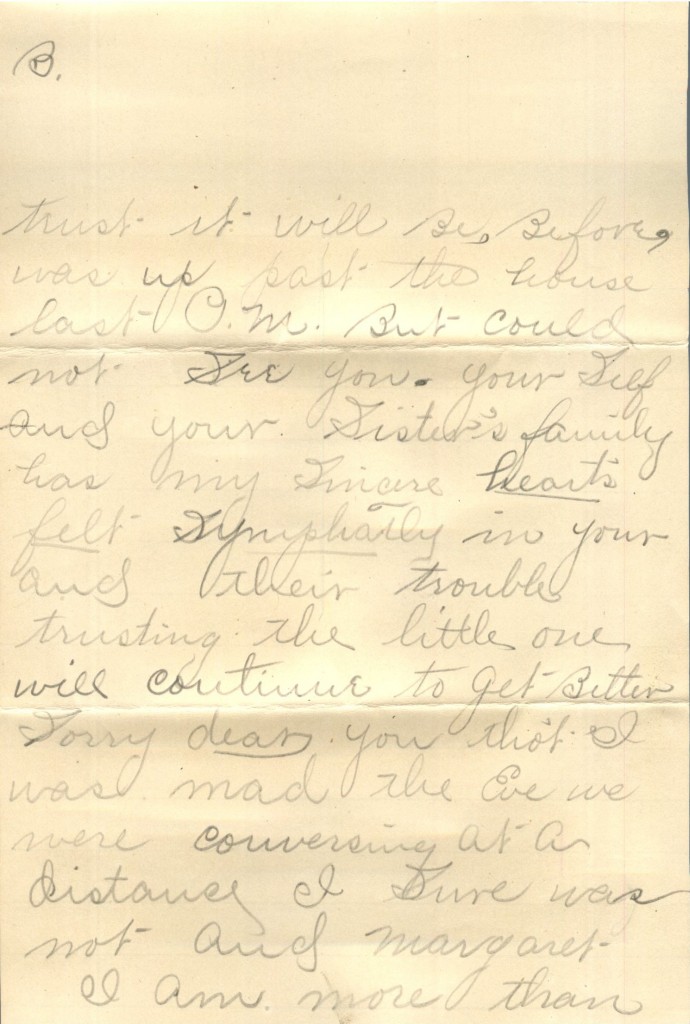 B.
trust it will Be, Before,
was up past the house
last P.M. But could
not See you. your Self
and your. Sister's family
has my Sincere hearts
felt Symphatly in your
and their trouble
trusting the little one
will continue to get Better
Sorry dear you thot I
was mad the Eve we
were conversing at a
distance I Sure was
not and Margaret
I am more than